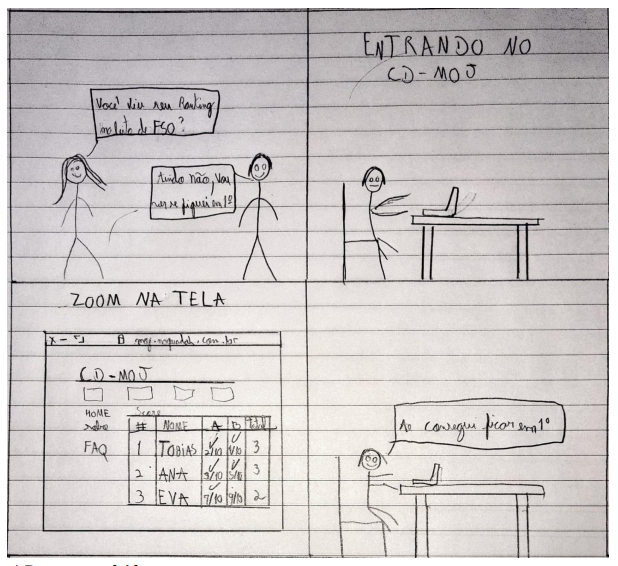 Você viu seu Ranking
na lista de FSO?
Ainda não, vou
ver se fiquei em 1º
ENTRANDO NO
CD-MOJ
ZOOM NA TELA
X -
CD-MOJ
HOME
sobre
FAQ
Score
# NOME A B total
1 TOBIAS 2/10 1/10 3
2 ANA 3/10 5/10 3
3 EVA 7/10 9/10 2
consegui ficar em 1º